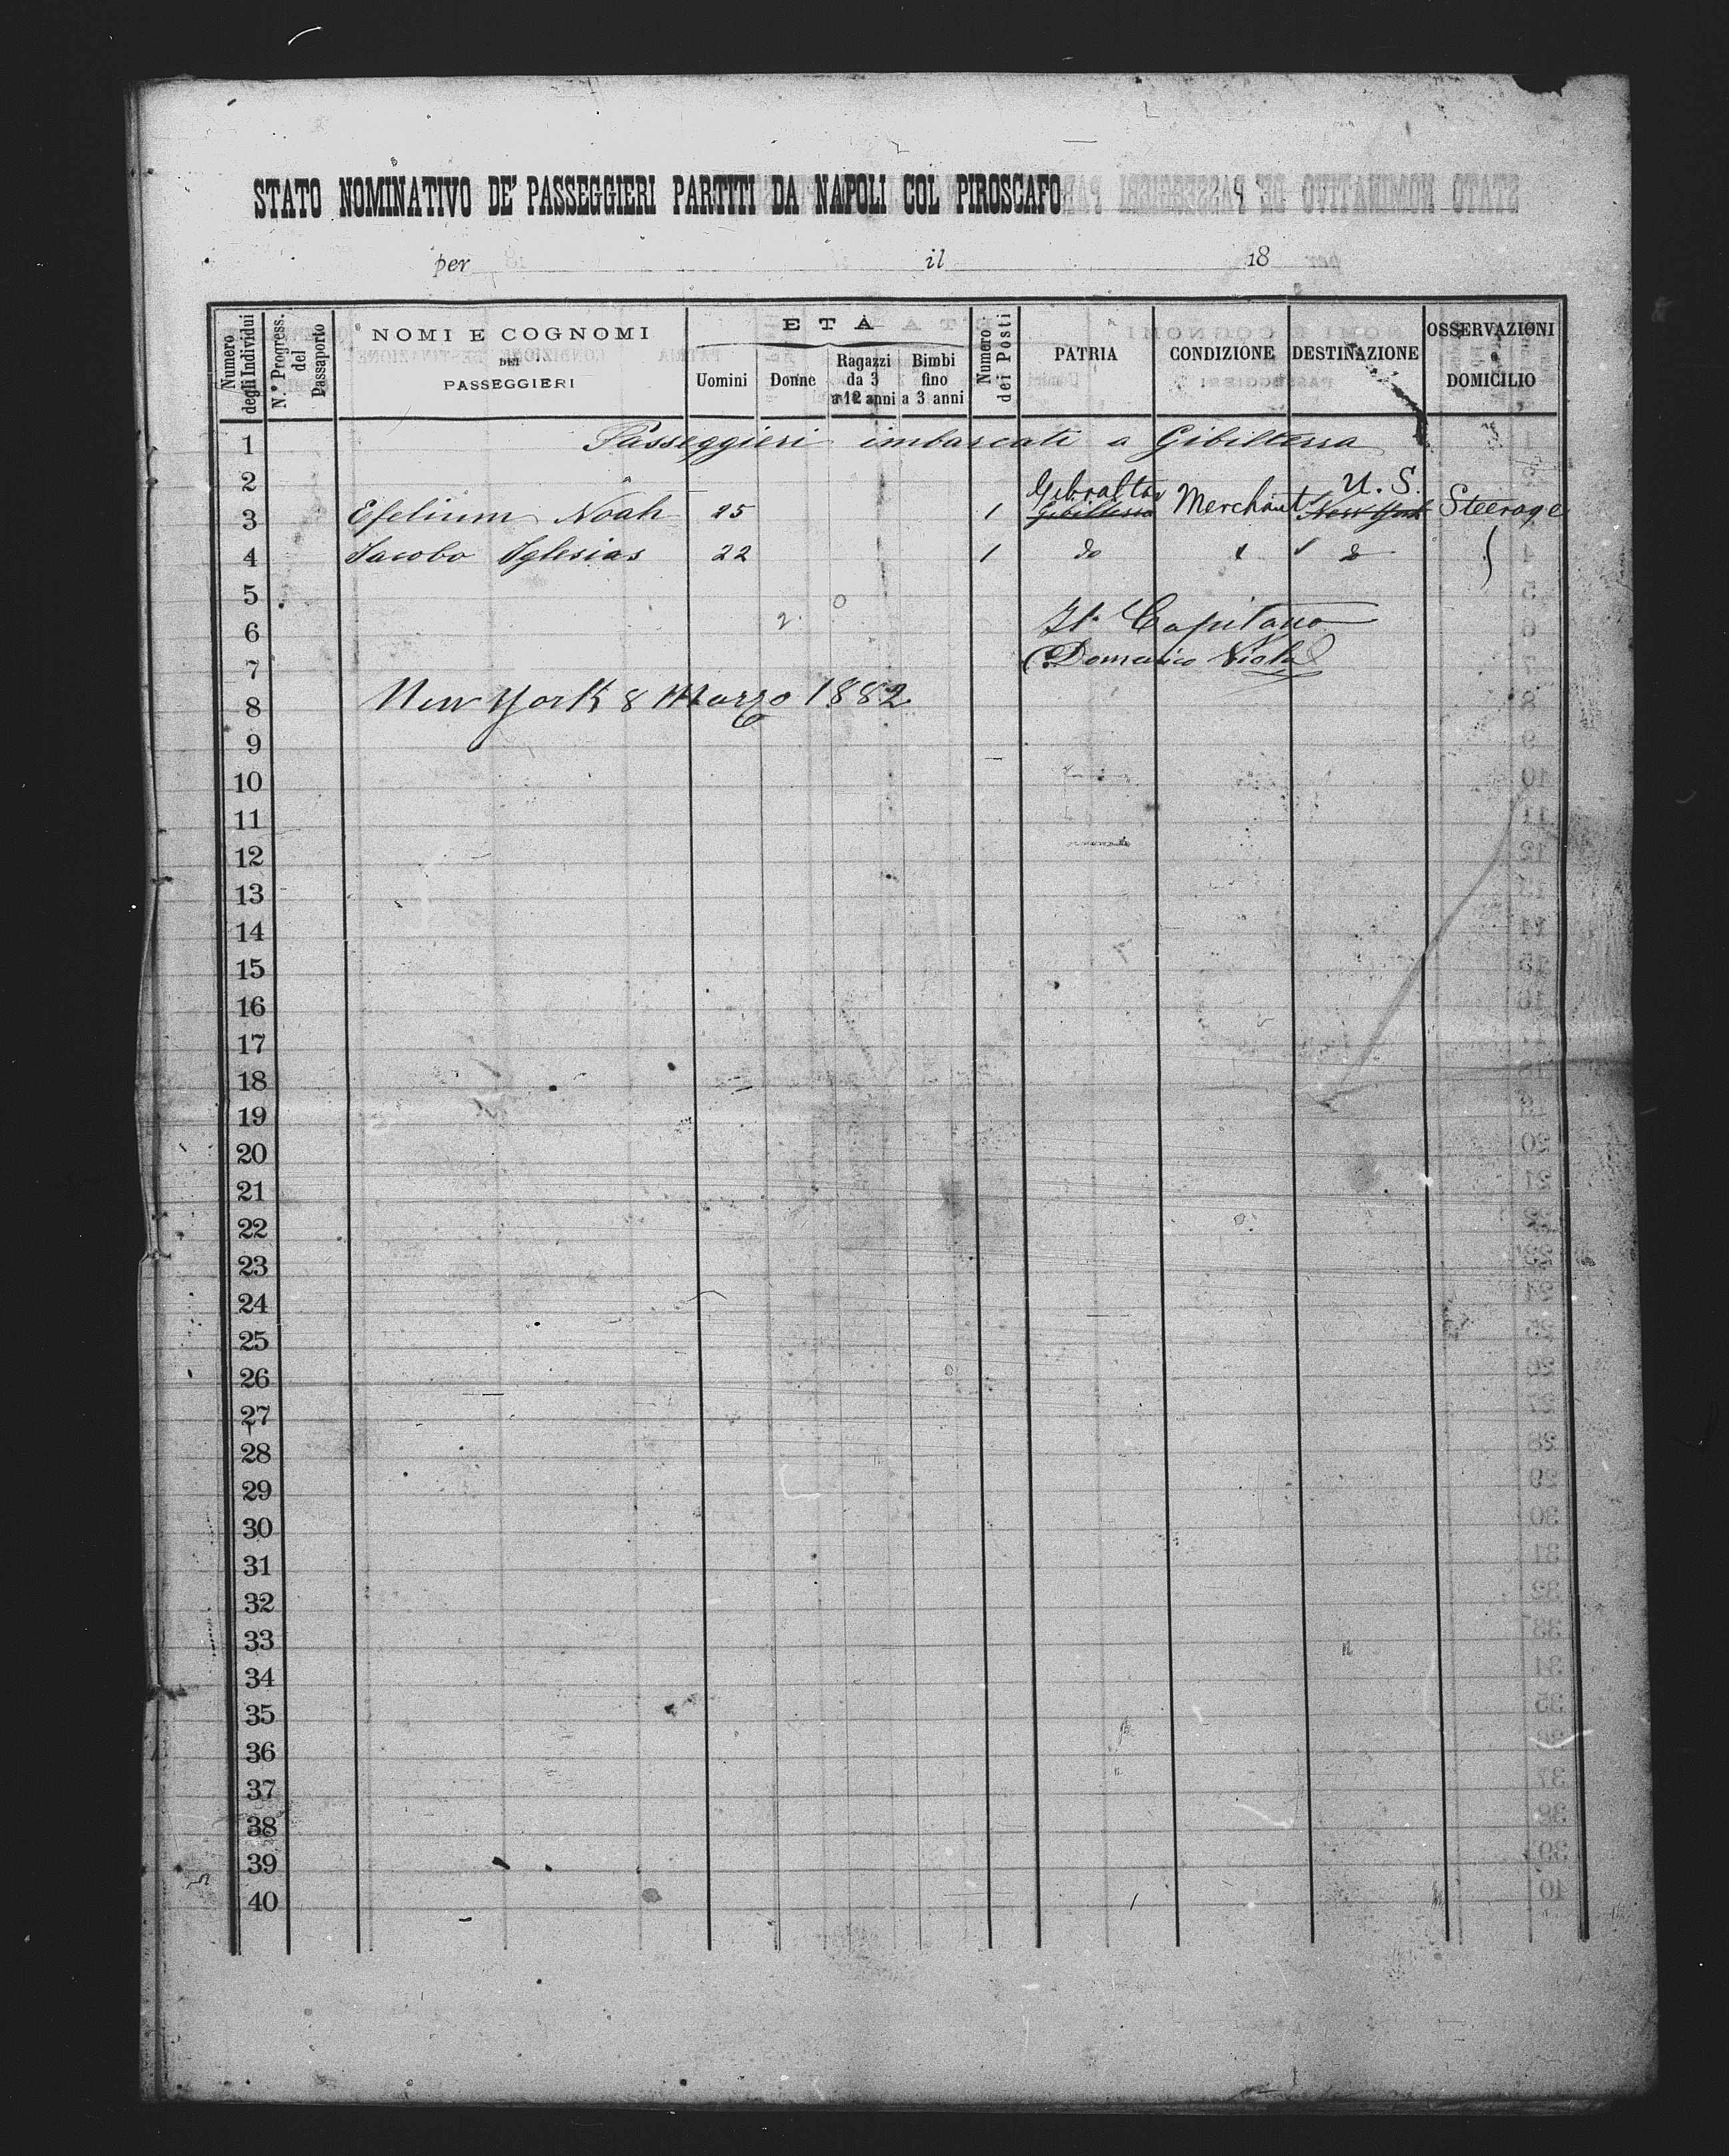 STATO NOMINATIVO DE' PASSEGGIERI PARTITI DA NAPOLI COL PIROSCAFO
per il 18
Numero degli Individui
N.° Progress. del Passaporto
NOMI E COGNOMI
DEI
PASSEGGIERI
ETÀ
Uomini
Donne
Ragazzi da 3 a 12 anni
Bimbi fino a 3 anni
Numero dei Posti
PATRIA
CONDIZIONE
DESTINAZIONE
OSSERVAZIONI
e
DOMICILIO
1 Passeggieri imbarcati a Gibilterra
2 Gibraltar U. S.
3 Noah 25 1 Gibilterra Merchant New York Steerage
4 Jacobo Iglesias 22 1 do
5
6 2 0 Il Capitano
7 Domenico
8 New York 8 Marzo 1882
9
10
11
12
13
14
15
16
17
18
19
20
21
22
23
24
25
26
27
28
29
30
31
32
33
34
35
36
37
38
39
40